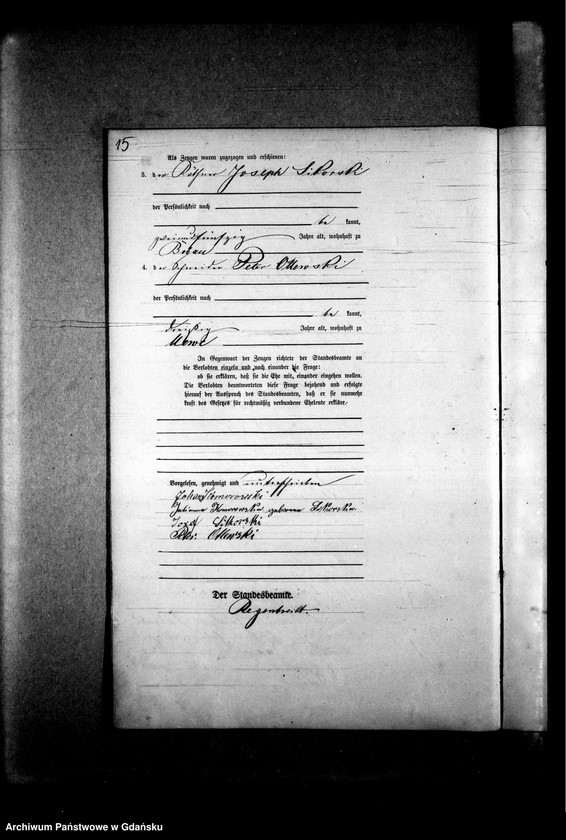 15
Als Zeugen waren zugezogen und erschienen:
3. der Käthner Joseph Sikorski
der Persönlichkeit nach
be kannt,
zweiundfünfzig Jahre alt, wohnhaft zu
4. der Schneider Peter Ottowski
der Persönlichkeit nach
be kannt,
dreißig Jahre alt, wohnhaft zu
Mewe
In Gegenwart der Zeugen richtete der Standesbeamte an
die Verlobten einzeln und nach einander die Frage:
ob sie erklären, daß sie die Ehe mit einander eingehen wollen.
Die Verlobten beantworteten diese Frage bejahend und erfolgte
hierauf der Ausspruch des Standesbeamten, daß er sie nunmehr
kraft des Gesetzes für rechtmäßig verbundene Eheleute erkläre.
Vorgelesen, genehmigt und unterschrieben
Komorowski
Julianna Komorowska geborene Sikorska
Józef Sikorski
Peter Otlewski
Der Standesbeamte.
Regenbrecht
Archiwum Państwowe w Gdańsku